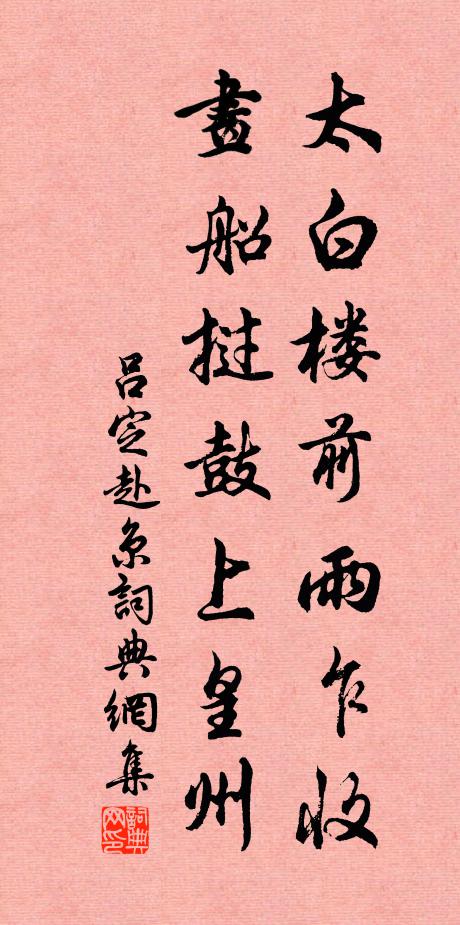 太白楼前雨乍收
畫船撾鼓上皇州
吕定赴京詞典網集
詞典网印